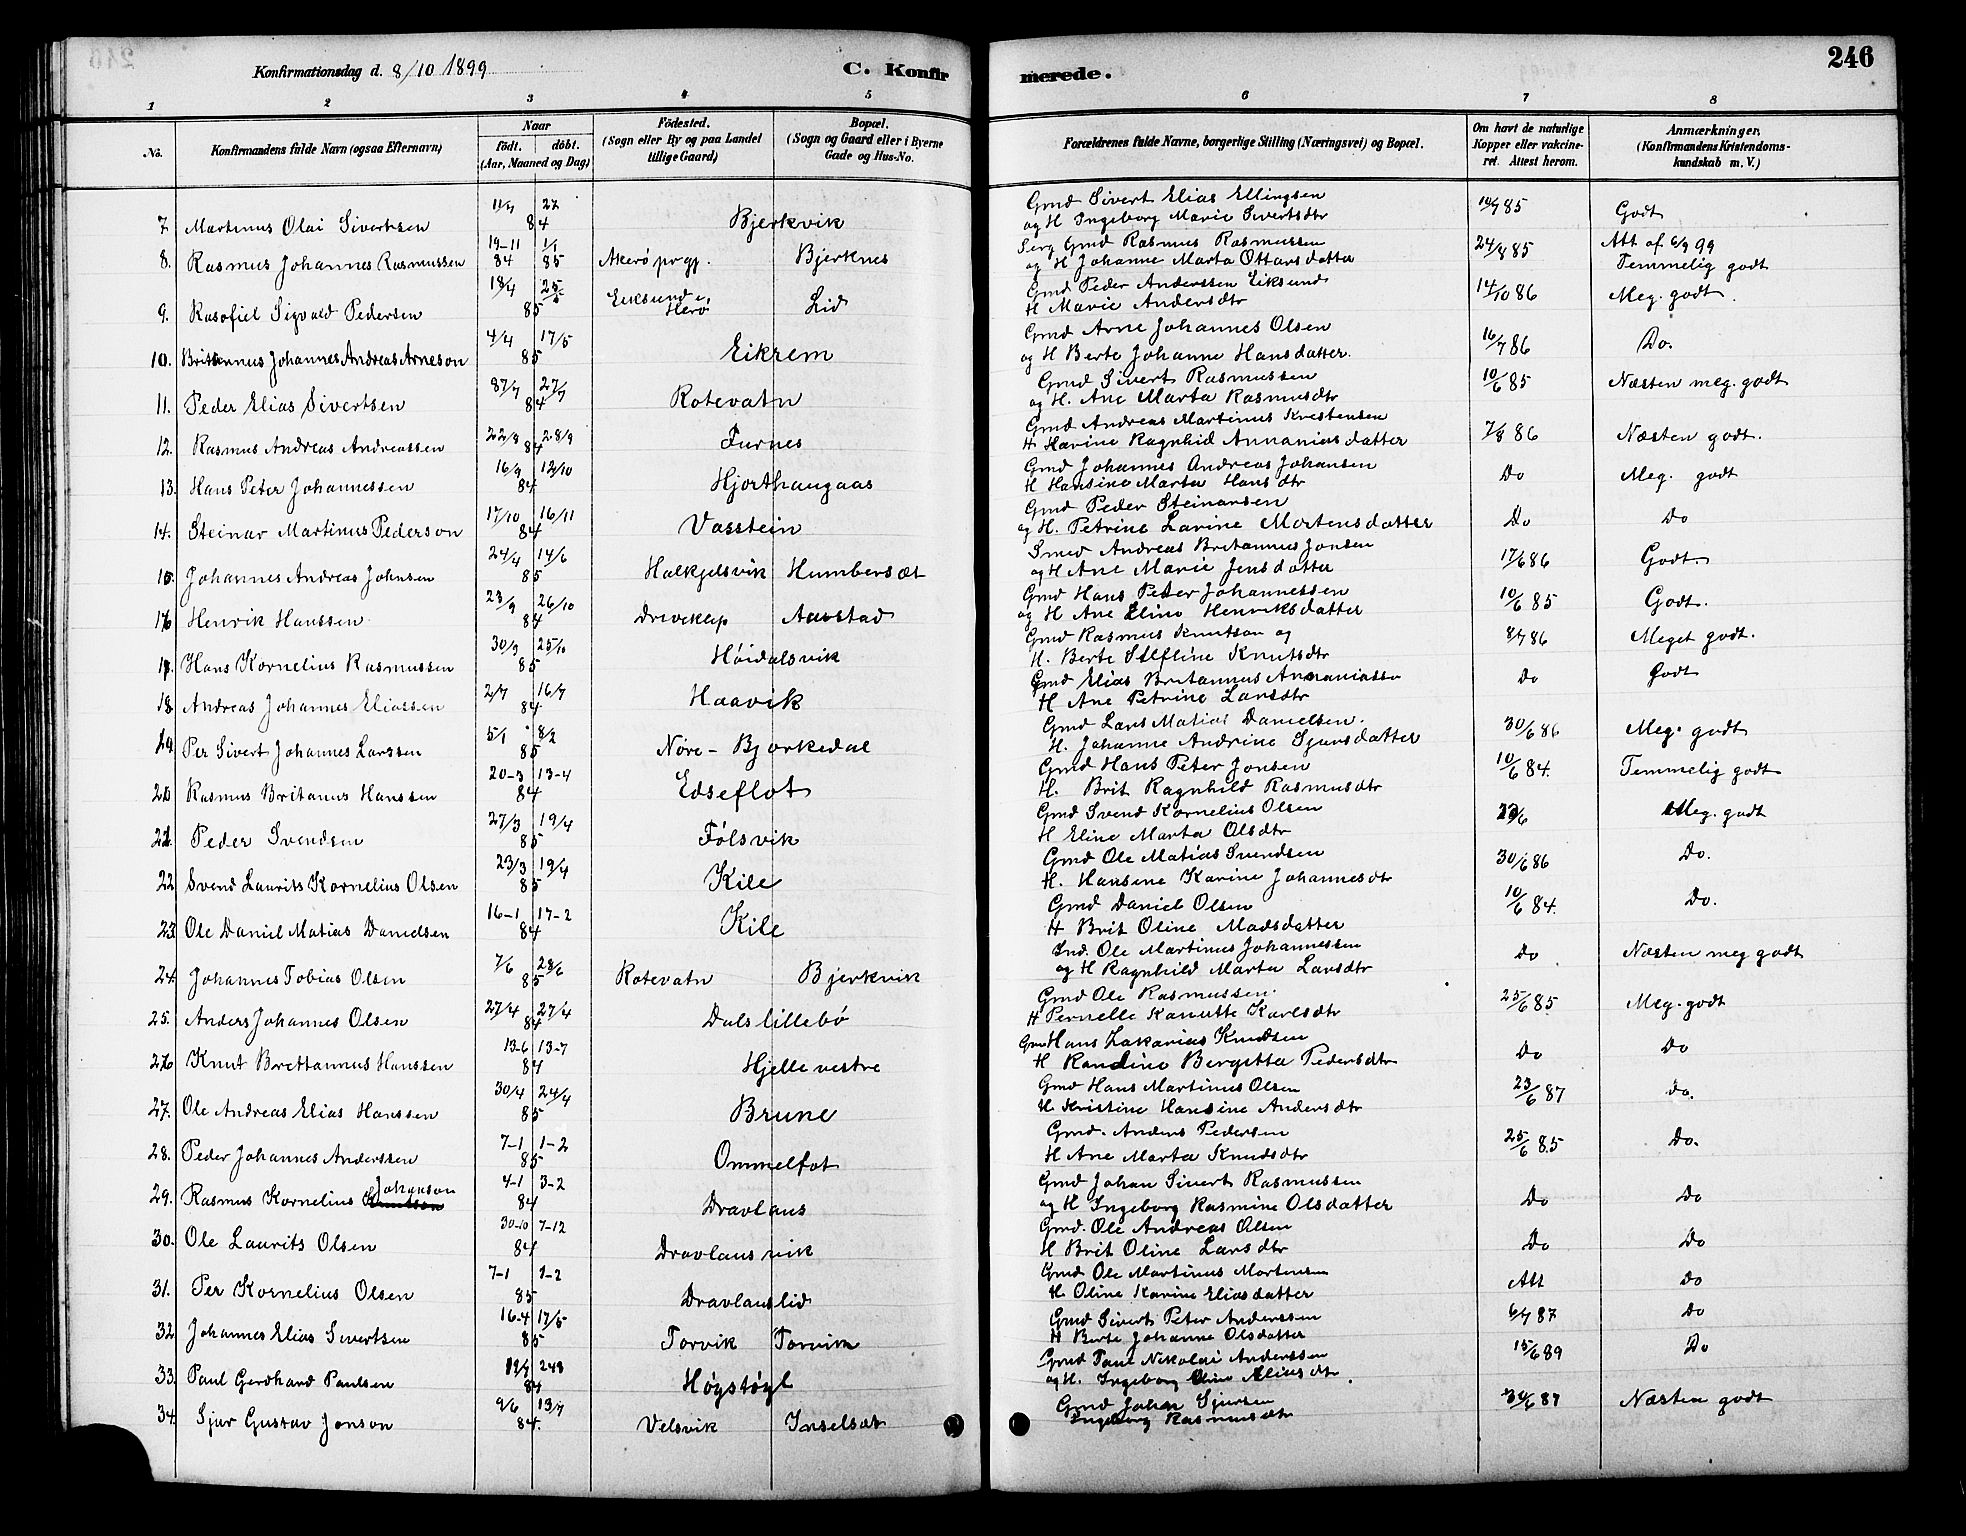 246
Konfirmationsdag d. 8/10 1899
C. Konfirmerede.
1 2 3 4 5 6 7 8
No. Konfirmandens fulde Navn (ogsaa Efternavn) Naar født. døbt. (Aar, Maaned og Dag) Fødested. (Sogn eller By og paa Landet tillige Gaard) Bopæl. (Sogn og Gaard eller i Byerne Gade og Hus-No. Forældrenes fulde Navne, borgerlige Stilling (Næringsvei) og Bopæl. Om havt de naturlige Kopper eller vakcineret. Attest herom. Anmærkninger. (Konfirmandens Kristendomskundskab m. V.)
7. Martinus Olai Sivertsen 84 Bjerkvik Gmd Sivert Elias Ellingsen
og H Ingeborg Marie Sivertsdtr Godt
8. Rasmus Johannes Rasmussen 19-11 84 1/1 85 Akerø prgj. Bjerknes Serg Gmd Rasmus Rasmussen 24/8 85 Att af 6/9 99
og H Johanne Marta Ottarsdatter Temmelig godt
9. Rasofiel Sigvald Pedersen 18/4 85 Eiksund i Herø Lid Gmd Peder Anderssen Eiksund 14/10 86 Meg. godt.
H Marie Andersdtr
10. Britannus Johannes Andreas Arneson 4/4 17/5 85 Eikrem Gmd Arne Johannes Olsen 16/7 86 Do.
og H Berte Johanne Hansdatter.
11. Peder Elias Sivertsen 27/7 84 Rotevatn Gmd Sivert Rasmussen 10/6 85 Næsten meg. godt
og H. Ane Marta Rasmusdtr
12. Rasmus Andreas Andreassen 22/8 28/9 84 Furnes Gmd Andreas Martinus Kristensen 7/8 86 Næsten godt.
H Karine Ragnhild Annaniasdatter
13. Hans Peter Johannessen 16/9 12/10 84 Hjorthaugaas Gmd Johannes Andreas Johansen Do Meg. godt
H Hansine Marta Hansdtr
14. Steinar Martinus Pederson 17/10 16/11 84 Vasstein Gmd Peder Steinarsen Do Do
og H. Petrine Larine Mortensdatter
15. Johannes Andreas Johnsen 24/4 14/6 85 Halkjelsvik Humbersæt Smed Andreas Britannus Jonsen 17/6 86 Godt.
og H Ane Marie Jensdatter
16 Henrik Hanssen 23/9 26/10 84 Aarstad Gmd Hans Peter Johannessen 10/6 85 Godt.
og H Ane Eline Henriksdatter
17. Hans Kornelius Rasmussen 30/9 25/10 85 Høidalsvik Gmd Rasmus Knutson og 8/7 86 Meget godt.
H. Berte Knutsdtr
18. Andreas Johannes Eliassen 2/7 16/7 84 Haavik Gmd Elias Britannus Do Godt
H Ane Petrine Larsdtr
19. Per Sivert Johannes Larssen 5/1 8/2 85 Nøre-Bjørkedal Gmd Lars Matias Danielsen. 30/6 86 Meg. godt
H. Johanne Andrine Sjursdatter
20. Rasmus Britanus Hanssen 20-3 13-4 84 Edseflot Gmd Hans Peter Jonsen 10/6 84. Temmelig godt
H. Brit Ragnhild Rasmusdtr
21. Peder Svendsen 27/3 19/4 85 Følsvik Gmd Svend Kornelius Olsen Meg. godt
H Eline Marta Olsdtr
22 Svend Laurits Kornelius Olsen 23/3 19/4 85 Kile Gmd Ole Matias Svendsen 30/6 86 Do.
H. Hansine Karine Johannesdtr
23 Ole Daniel Matias Danielsen 16-1 17-2 84 Kile Gmd Daniel Olsen 10/6 84. Do.
H Brit Oline Madsdatter
24. Johannes Tobias Olsen 7/6 28/6 85 Rotevatn Bjerkvik Ind. Ole Martinus Johannessen Do Næsten meg godt
og H Ragnhild Marta Larsdtr
25. Anders Johannes Olsen 27/4 27/4 84 Dalslillebø Gmd Ole Rasmussen. 25/6 85 Meg. godt
H Pernelle Kanutte Karlsdtr
26 Knut Brettannus Hanssen 13-6 13-7 84 Hjelle vestre Gmd Hans Zakarias Knudsen Do Do
H Randine Bergitta Pedersdtr
27. Ole Andreas Elias Hanssen 30/4 24/4 85 Brune Gmd Hans Martinus Olsen 23/6 87 do.
H Kristine Hansine Andersdtr
28. Peder Johannes Anderssen 7-1 1-2 85 Ommelfot Gmd. Anders Pedersen 25/6 85 Do.
H Ane Marta Knudsdtr
29. Rasmus Kornelius Johanson 4-1 3-2 84 Dravlaus Gmd Johan Sivert Rasmussen Do Do
og H Ingeborg Rasmine Olsdatter
30. Ole Laurits Olsen 30-10 7-12 84 Dravlausvik Gmd. Ole Andreas Olsen Do Do
H Brit Oline Larsdtr
31. Per Kornelius Olsen 7-1 1-2 85 Dravlauslid Gmd Ole Martinus Mortensen Att Do
H Oline Karine Eliasdatter
32 Johannes Elias Sivertsen 16-4 17/5 85 Torvik Torvik Gmd Sivert Peter Anderssen 6/7 87 Do
H Berte Johanne Olsdatter
33. Paul Gerdhard Paulsen 84 Høgstøgl Gmd Paul Nikolai Anderssen 15/6 89 Do
og H. Ingeborg Oline Eliasdtr.
34. Sjur Gustav Jonson 9/6 13/7 84. Velsvik Inselsæt Gmd Johan Sjursen Næsten godt
Ingeborg Rasmusdtr